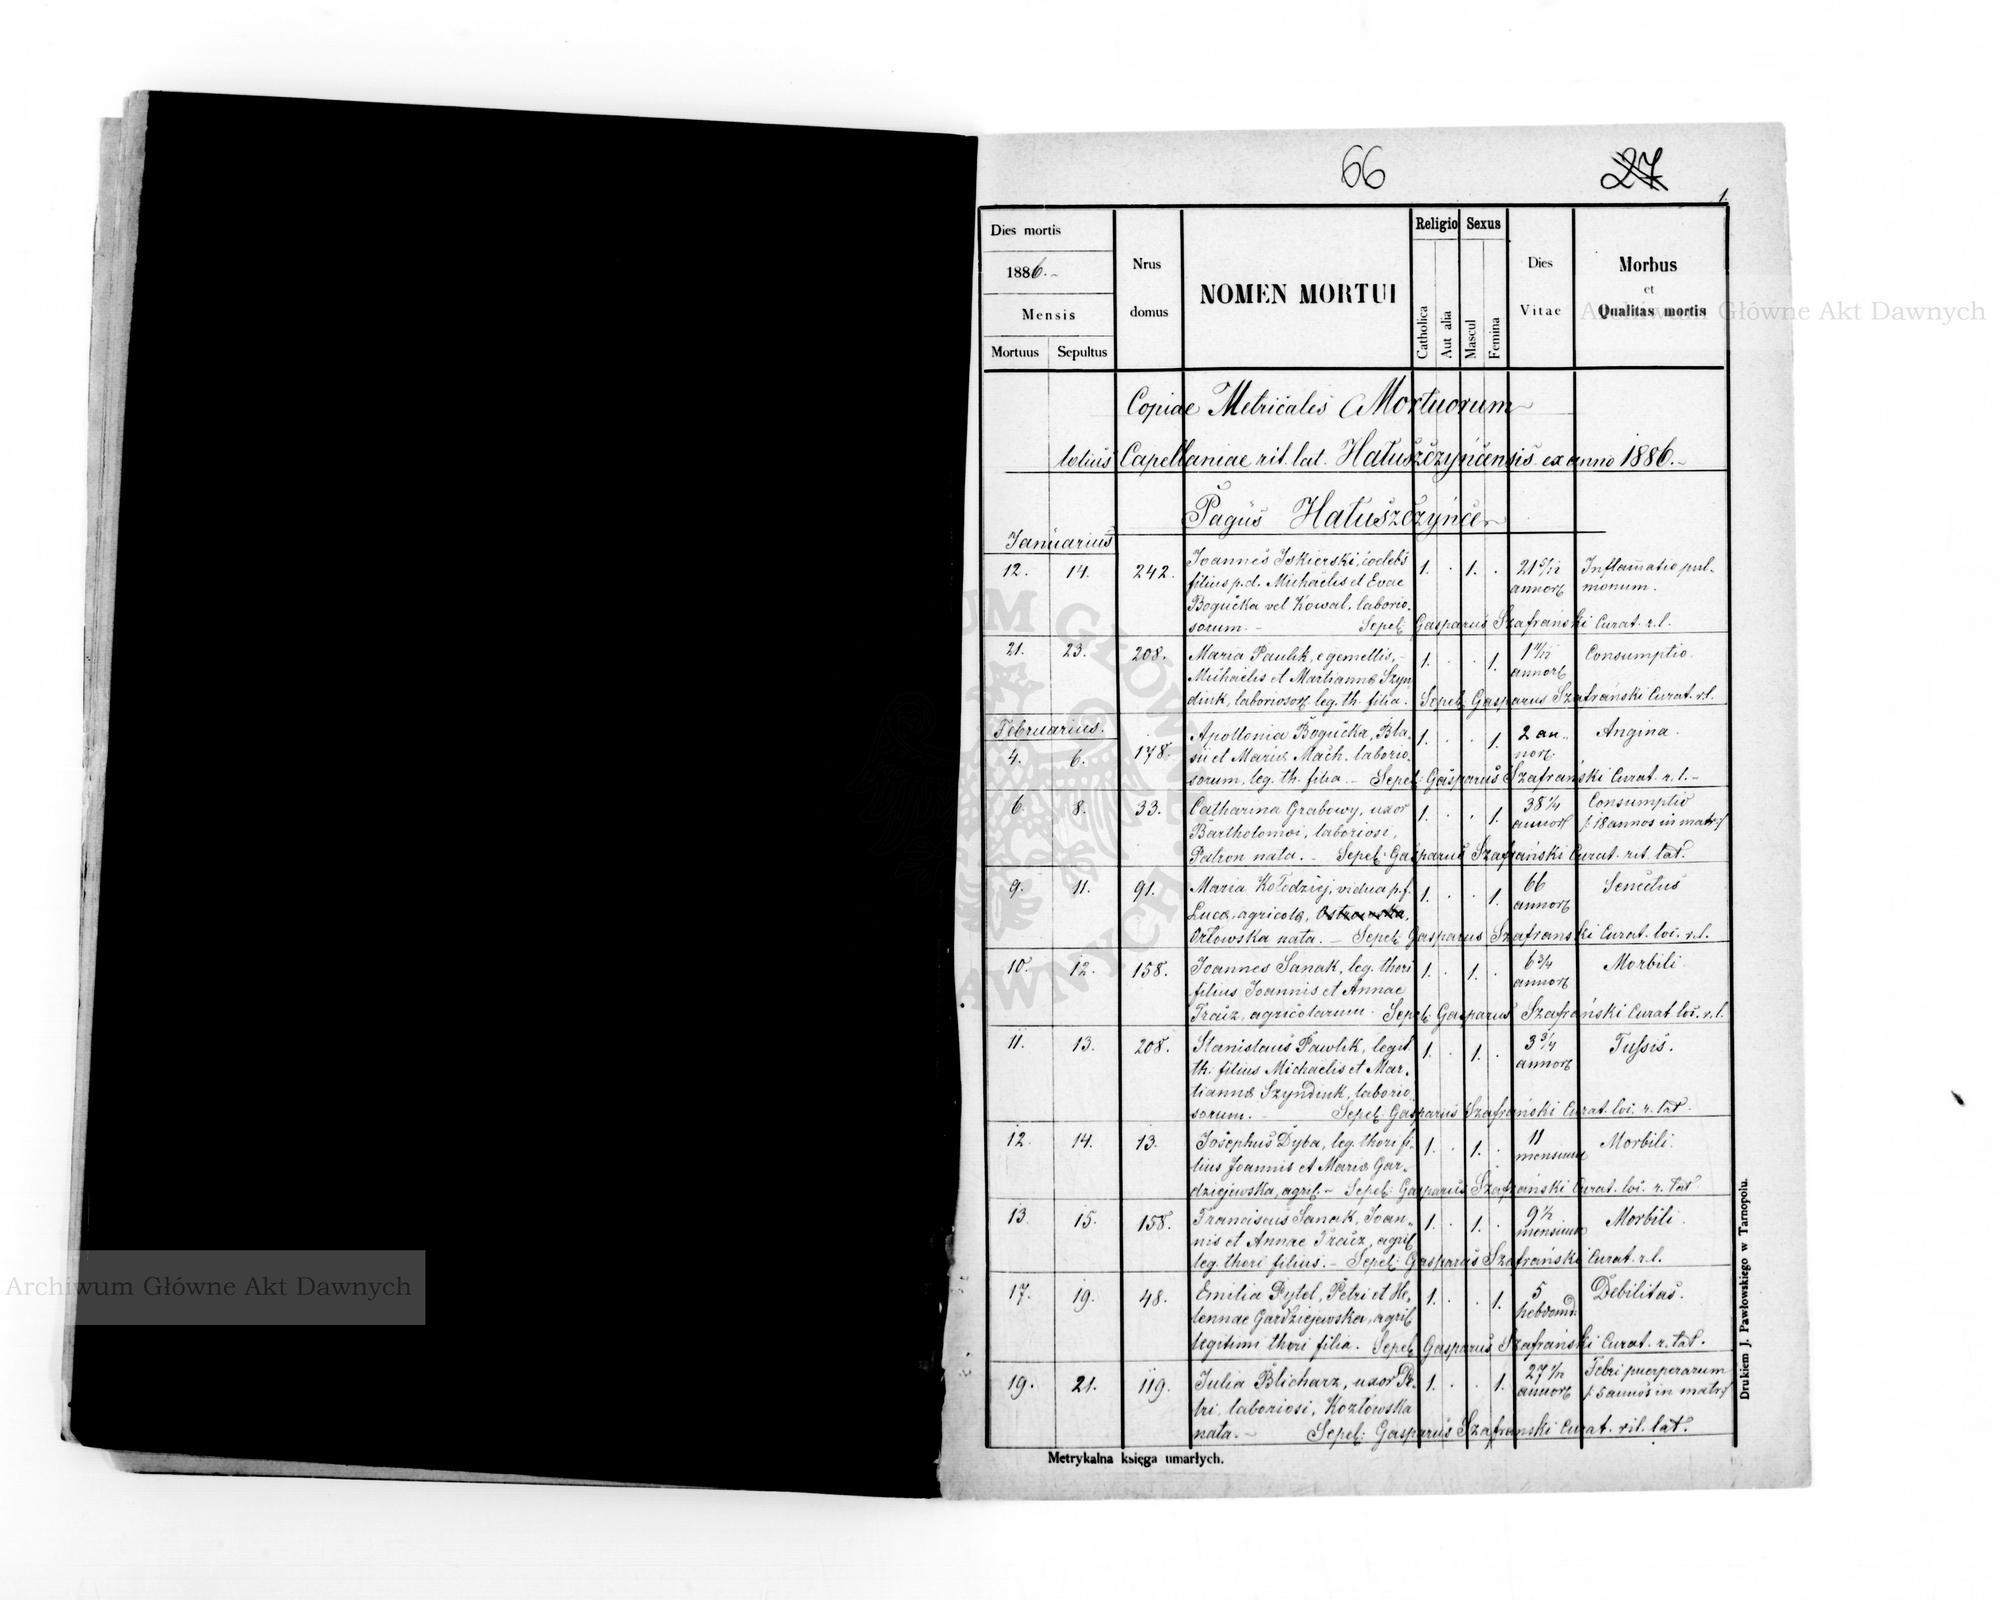 66 27
1.
Dies mortis
1886.
Mensis
Mortuus Sepultus
Nrus domus
NOMEN MORTUI
Religio
Catholica
Aut alia
Sexus
Mascul
Femina
Dies Vitae
Morbus
et
Qualitas mortis
Copiae Metricales Mortuorum
totius Capellaniae rit. lat. Hałuszczyńcensis ex anno 1886.
Pagus Hałuszczyńce
Januarius
12. 14. 242. Joannes Iskierski, coelebs 1. . 1. . 21 5/12 Inflammatio pul-
filius p.d. Michaelis et Evae annor. monum.
Bogucka vel Kowal, laborio-
sorum. Sepel: Gasparus Szafrański Curat. r.l.
21. 23. 208. Maria Paulik, e gemellis, 1. . . 1. 1 11/12 Consumptio.
Michaelis et Martianna Szyn- annor.
diuk, laborios. leg. th. filia. Sepel: Gasparus Szafrański Curat. r.l.
Februarius.
4. 6. 178. Apollonia Bogucka, Bla- 1. . . 1. 2 an- Angina.
sii et Maria Mach. laborio- nor.
sorum, leg. th. filia. - Sepel: Gasparus Szafrański Curat. r.l. -
6. 8. 33. Catharina Grabowy, uxor 1. . . 1. 38 1/4 Consumptio
Bartholomei, laboriosi, annor. /: 18 annos in matr:/
Patron nata. - Sepel: Gasparus Szafrański Curat. rit. lat.
9. 11. 91. Maria Kołodziej, vidua p.f. 1. . . 1. 66 Senectus
Luca, agricola, Ostrowska, annor.
Orłowska nata. - Sepel: Gasparus Szafrański Curat. loc. r.l.
10. 12. 158. Joannes Sanak, leg. thori 1. . 1. . 6 3/4 Morbili.
filius Joannis et Annae annor.
Tracz, agricolarum. Sepel: Gasparus Szafrański Curat. loc. r.l.
11. 13. 208. Stanislaus Pawlik, legit. 1. . 1. . 3 3/4 Tussis.
th. filius Michaelis et Mar- annor.
tianna Szyndiuk, laborio-
sorum. - Sepel: Gasparus Szafrański Curat. loc. r. lat.
12. 14. 13. Josephus Dyba, leg. thori fi- 1. . 1. . 11 Morbili.
lius Joannis et Maria Gar- mensium
dziejewska, agric. - Sepel: Gasparus Szafrański Curat. loc. r. lat.
13. 15. 158. Franciscus Sanak, Joan- 1. . 1. . 9 1/2 Morbili.
nis et Annae Tracz, agric. mensium
leg. thori filius. - Sepel: Gasparus Szafrański Curat. r.l.
17. 19. 48. Emilia Pytel, Petri et He- 1. . . 1. 5 Debilitas.
lennae Gardziejewska, agric. hebdomd.
legitimi thori filia. Sepel: Gasparus Szafrański Curat. r. lat.
19. 21. 119. Julia Blicharz, uxor Pe- 1. . . 1. Febri puerperarum
tri, laboriosi, Kozłowska annor. /: 5 annos in matr:/
nata. - Sepel: Gasparus Szafrański Curat. rit. lat.
Metrykalna księga umarłych.
Drukiem J. Pawłowskiego w Tarnopolu.
Archiwum Główne Akt Dawnych
Archiwum Główne Akt Dawnych